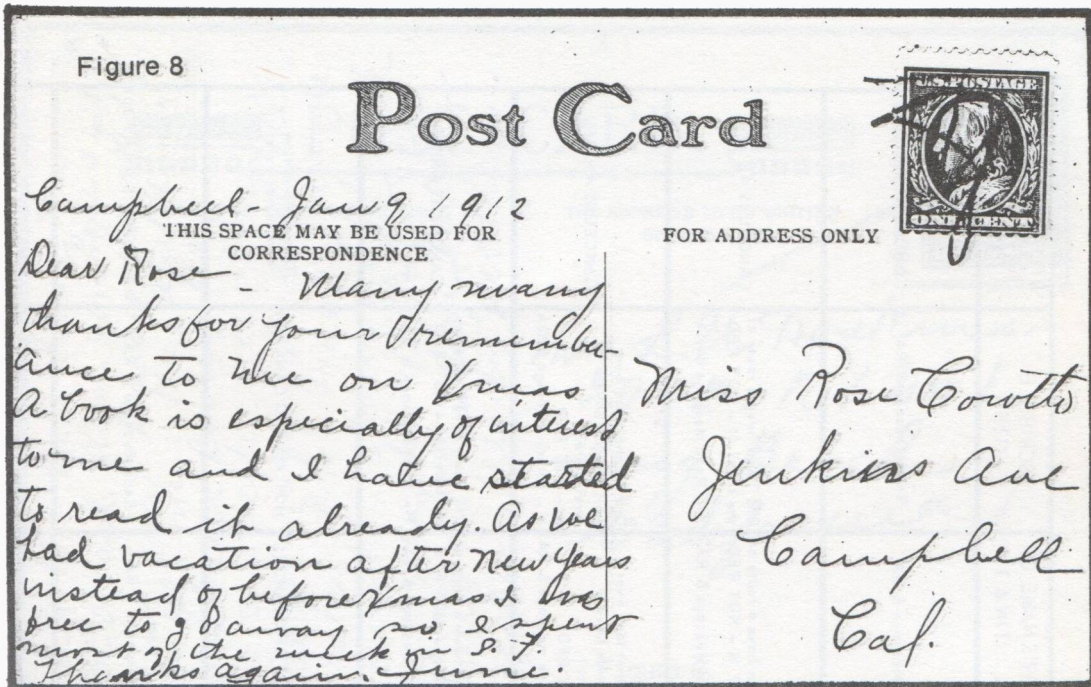 Figure 8
Post Card
U.S. POSTAGE
ONE CENT
Campbell - Jan 9, 1912
THIS SPACE MAY BE USED FOR
CORRESPONDENCE
Dear Rose - Many many
thanks for your remember-
ance to me on Xmas
A book is especially of interest
to me and I have started
to read it already. As we
had vacation after New Years
instead of before Xmas I was
free to go away so I spent
most of the week in S.F.
Thanks again. June.
FOR ADDRESS ONLY
Miss Rose
Jenkins Ave
Campbell
Cal.